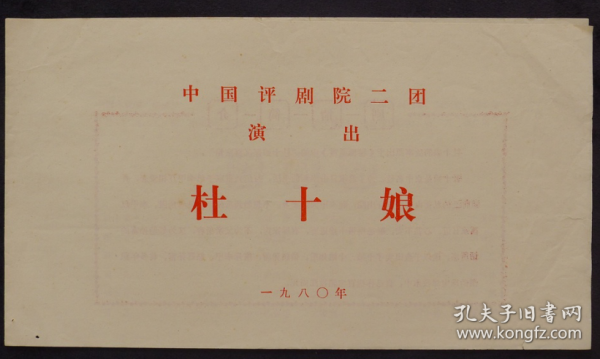 中国评剧院二团
演出
杜十娘
一九八〇年
孔夫子旧书网
www.kongfz.com